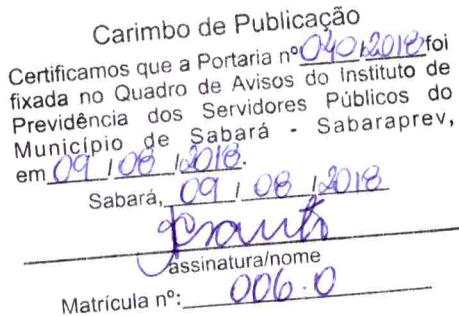 Carimbo de Publicação
Certificamos que a Portaria nº 040/2018 foi
fixada no Quadro de Avisos do Instituto de
Previdência dos Servidores Públicos do
Município de Sabará - Sabaraprev,
em 09/08/2018.
Sabará, 09/08/2018
assinatura/nome
Matrícula nº: 006.0